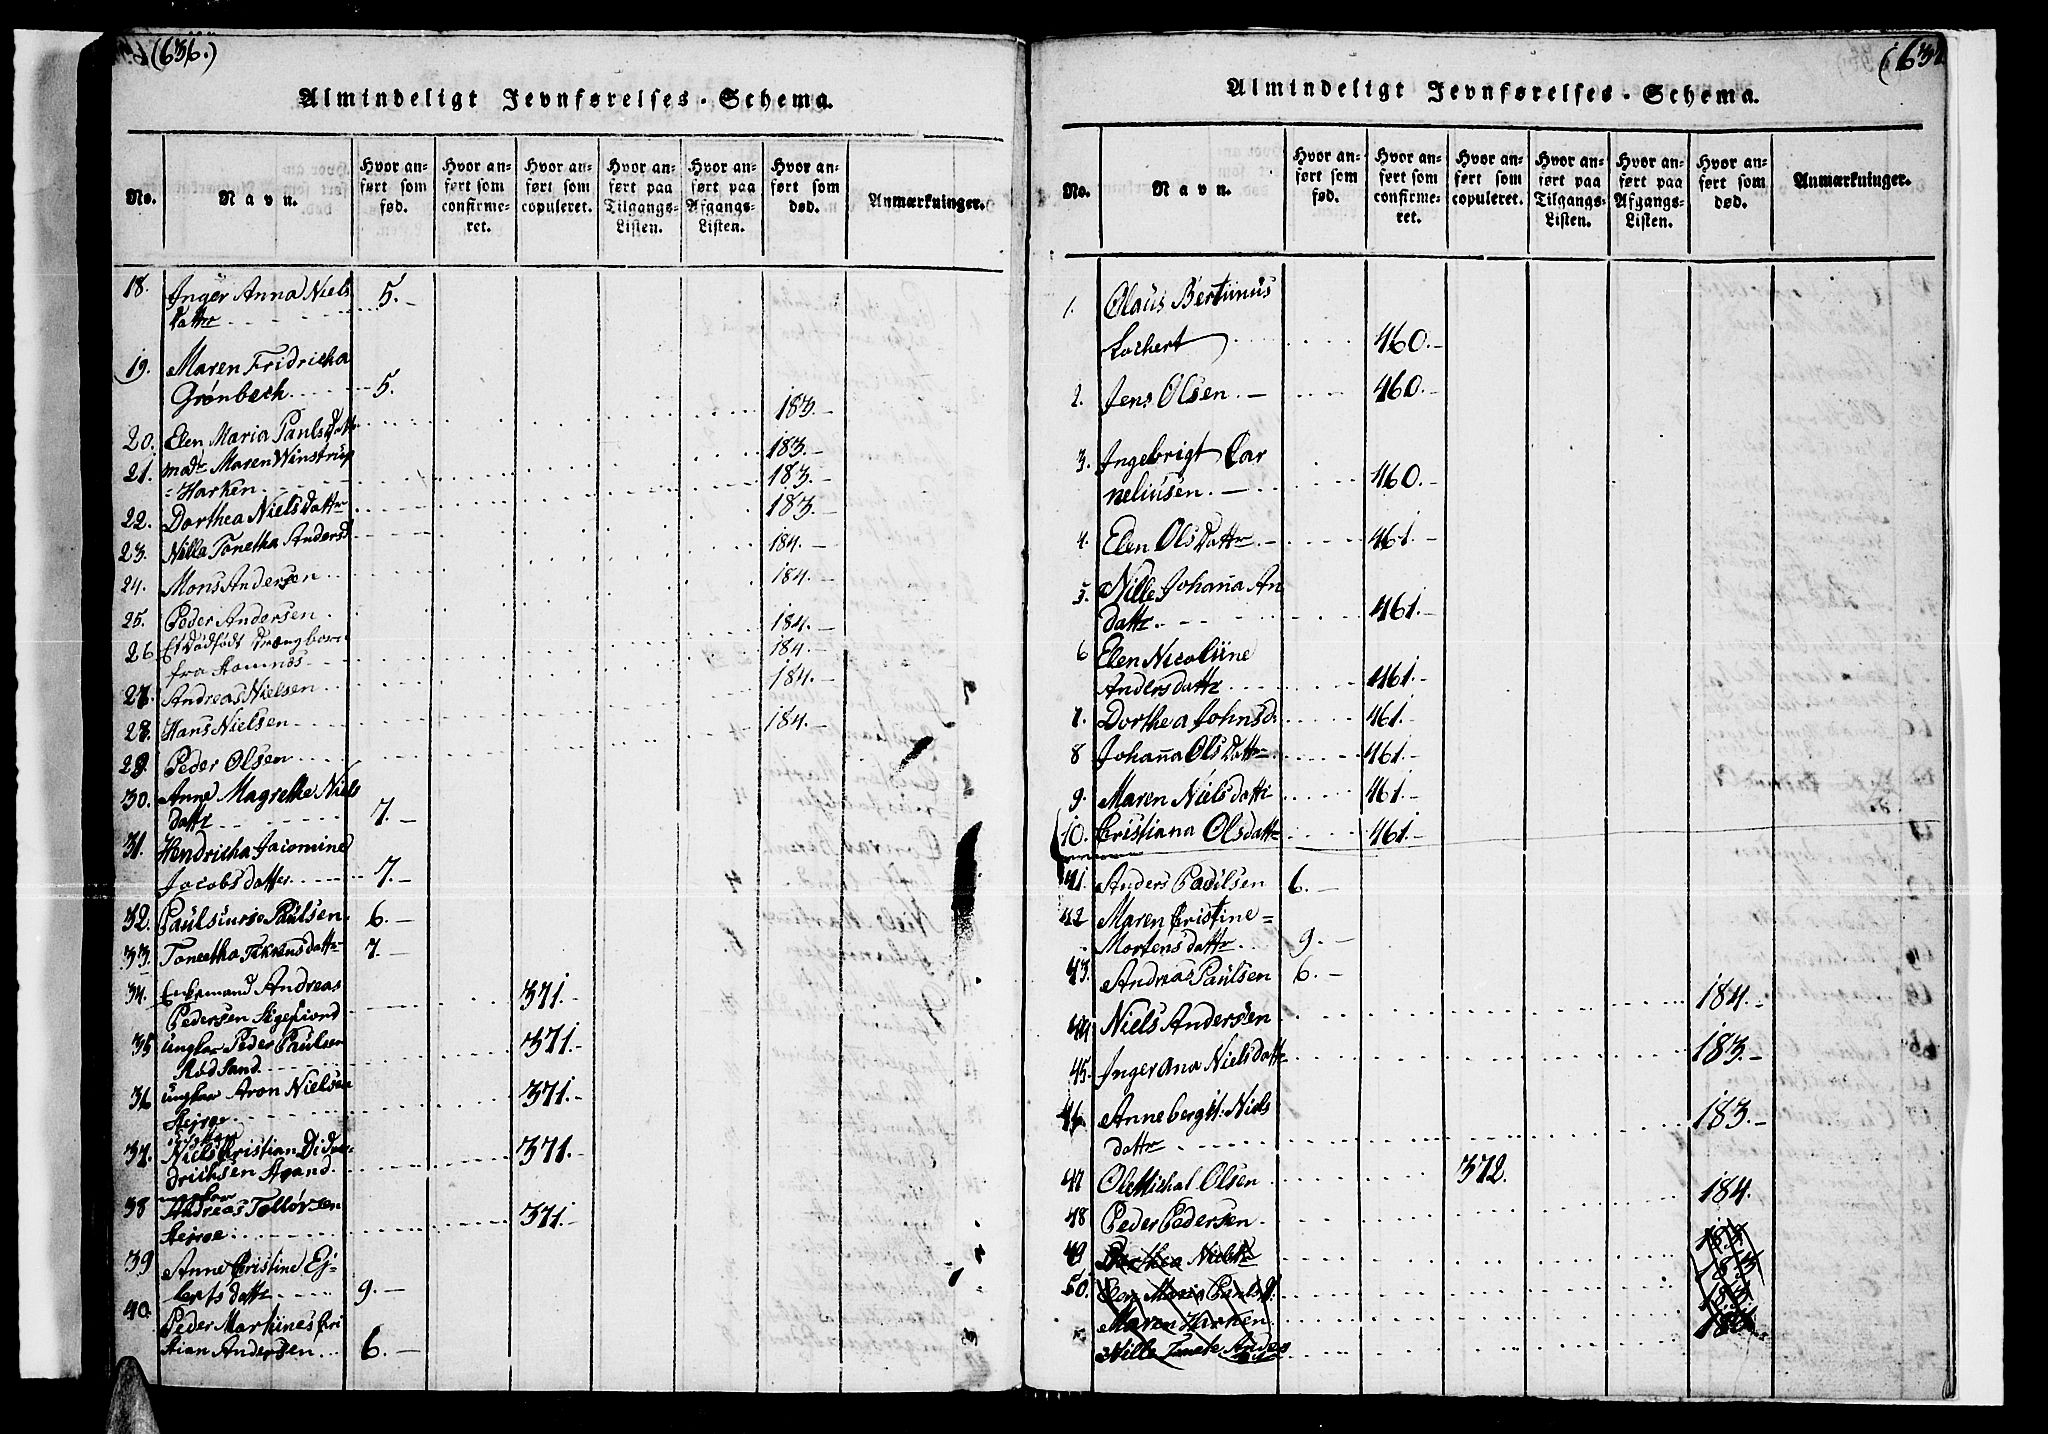 (636.)
Almindeligt Jevnførelses-Schema.
No.
Navn.
Hvor anført som fød.
Hvor anført som confirmeret.
Hvor anført som copuleret.
Hvor anført paa Tilgangs-Listen.
Hvor anført paa Afgangs-Listen.
Hvor anført som død.
Anmærkninger.
18. Inger Anna Niels
Datter 5.-
19. Maren Fridricha
Grønbech 5.
20. Elen Maria Paulsdatr 183.-
21. Madr Maren Winstrup
Harken 183.-
22. Dorthea Nielsdattr 183.-
23. Nilla Tonetha Andersd 183.-
24. Mons Andersen 184.-
25. Peder Andersen 184.-
26 Et dødfødt Drængbarn
fra 184.-
27. Andreas Nielsen 184.-
28. Hans Nielsen 184.-
29. Peder Olsen 184.-
30. Anne Magrethe Niels
datter 7.-
31. Hendricha Jacomine
Jacobsdatter 7.-
32. Paul Paulsen 6.-
33. Tonetha dattr 7.-
34. Enkemand Andreas
Pedersen 371.-
35 ungkar Peder Paulsen
Rødsand 371.-
36 ungkar Aron Nielsen
371.-
37. Niels Christian
drichsen 371.-
38 ungkar
Andreas Tolløvsen
371.-
39 Anne Cristine Ej-
lertsdattr 9.-
40. Peder Martines Cri
stian Andersen 6.-
(637
Almindeligt Jevnførelses-Schema.
No.
Navn.
Hvor anført som fød.
Hvor anført som confirmeret.
Hvor anført som copuleret.
Hvor anført paa Tilgangs-Listen.
Hvor anført paa Afgangs-Listen.
Hvor anført som død.
Anmærkninger.
1. Olaus Bertinus
Lochert 460.-
2. Jens Olsen.- 460.-
3. Ingebrigt Cor
neliusen.- 460.-
4. Elen Olsdattr.- 461.-
5. Nille Johanna An
dattr. 461.-
6 Elen Nicoline
Andersdattr 461.-
7. Dorthea Johnsd. 461.-
8 Johanna Olsdattr 461.-
9. Maren Nielsdattr 461.-
10. Cristiana Olsdattr 461.-
41. Anders Paulsen 6.-
42 Maren Cristine
Mortensdattr 9.-
43. Andreas Paulsen 6.-
44 Niels Andersen 184.-
45. Inger Ana Nielsdattr 183.-
46 Anne bergit: Niels
dattr 183.-
47 Ole Michal Olsen 372.
48 Peder Pedersen 184.
49 Dorthea
50. Elen Maria Pauls
Maren Harken
Nille Anders